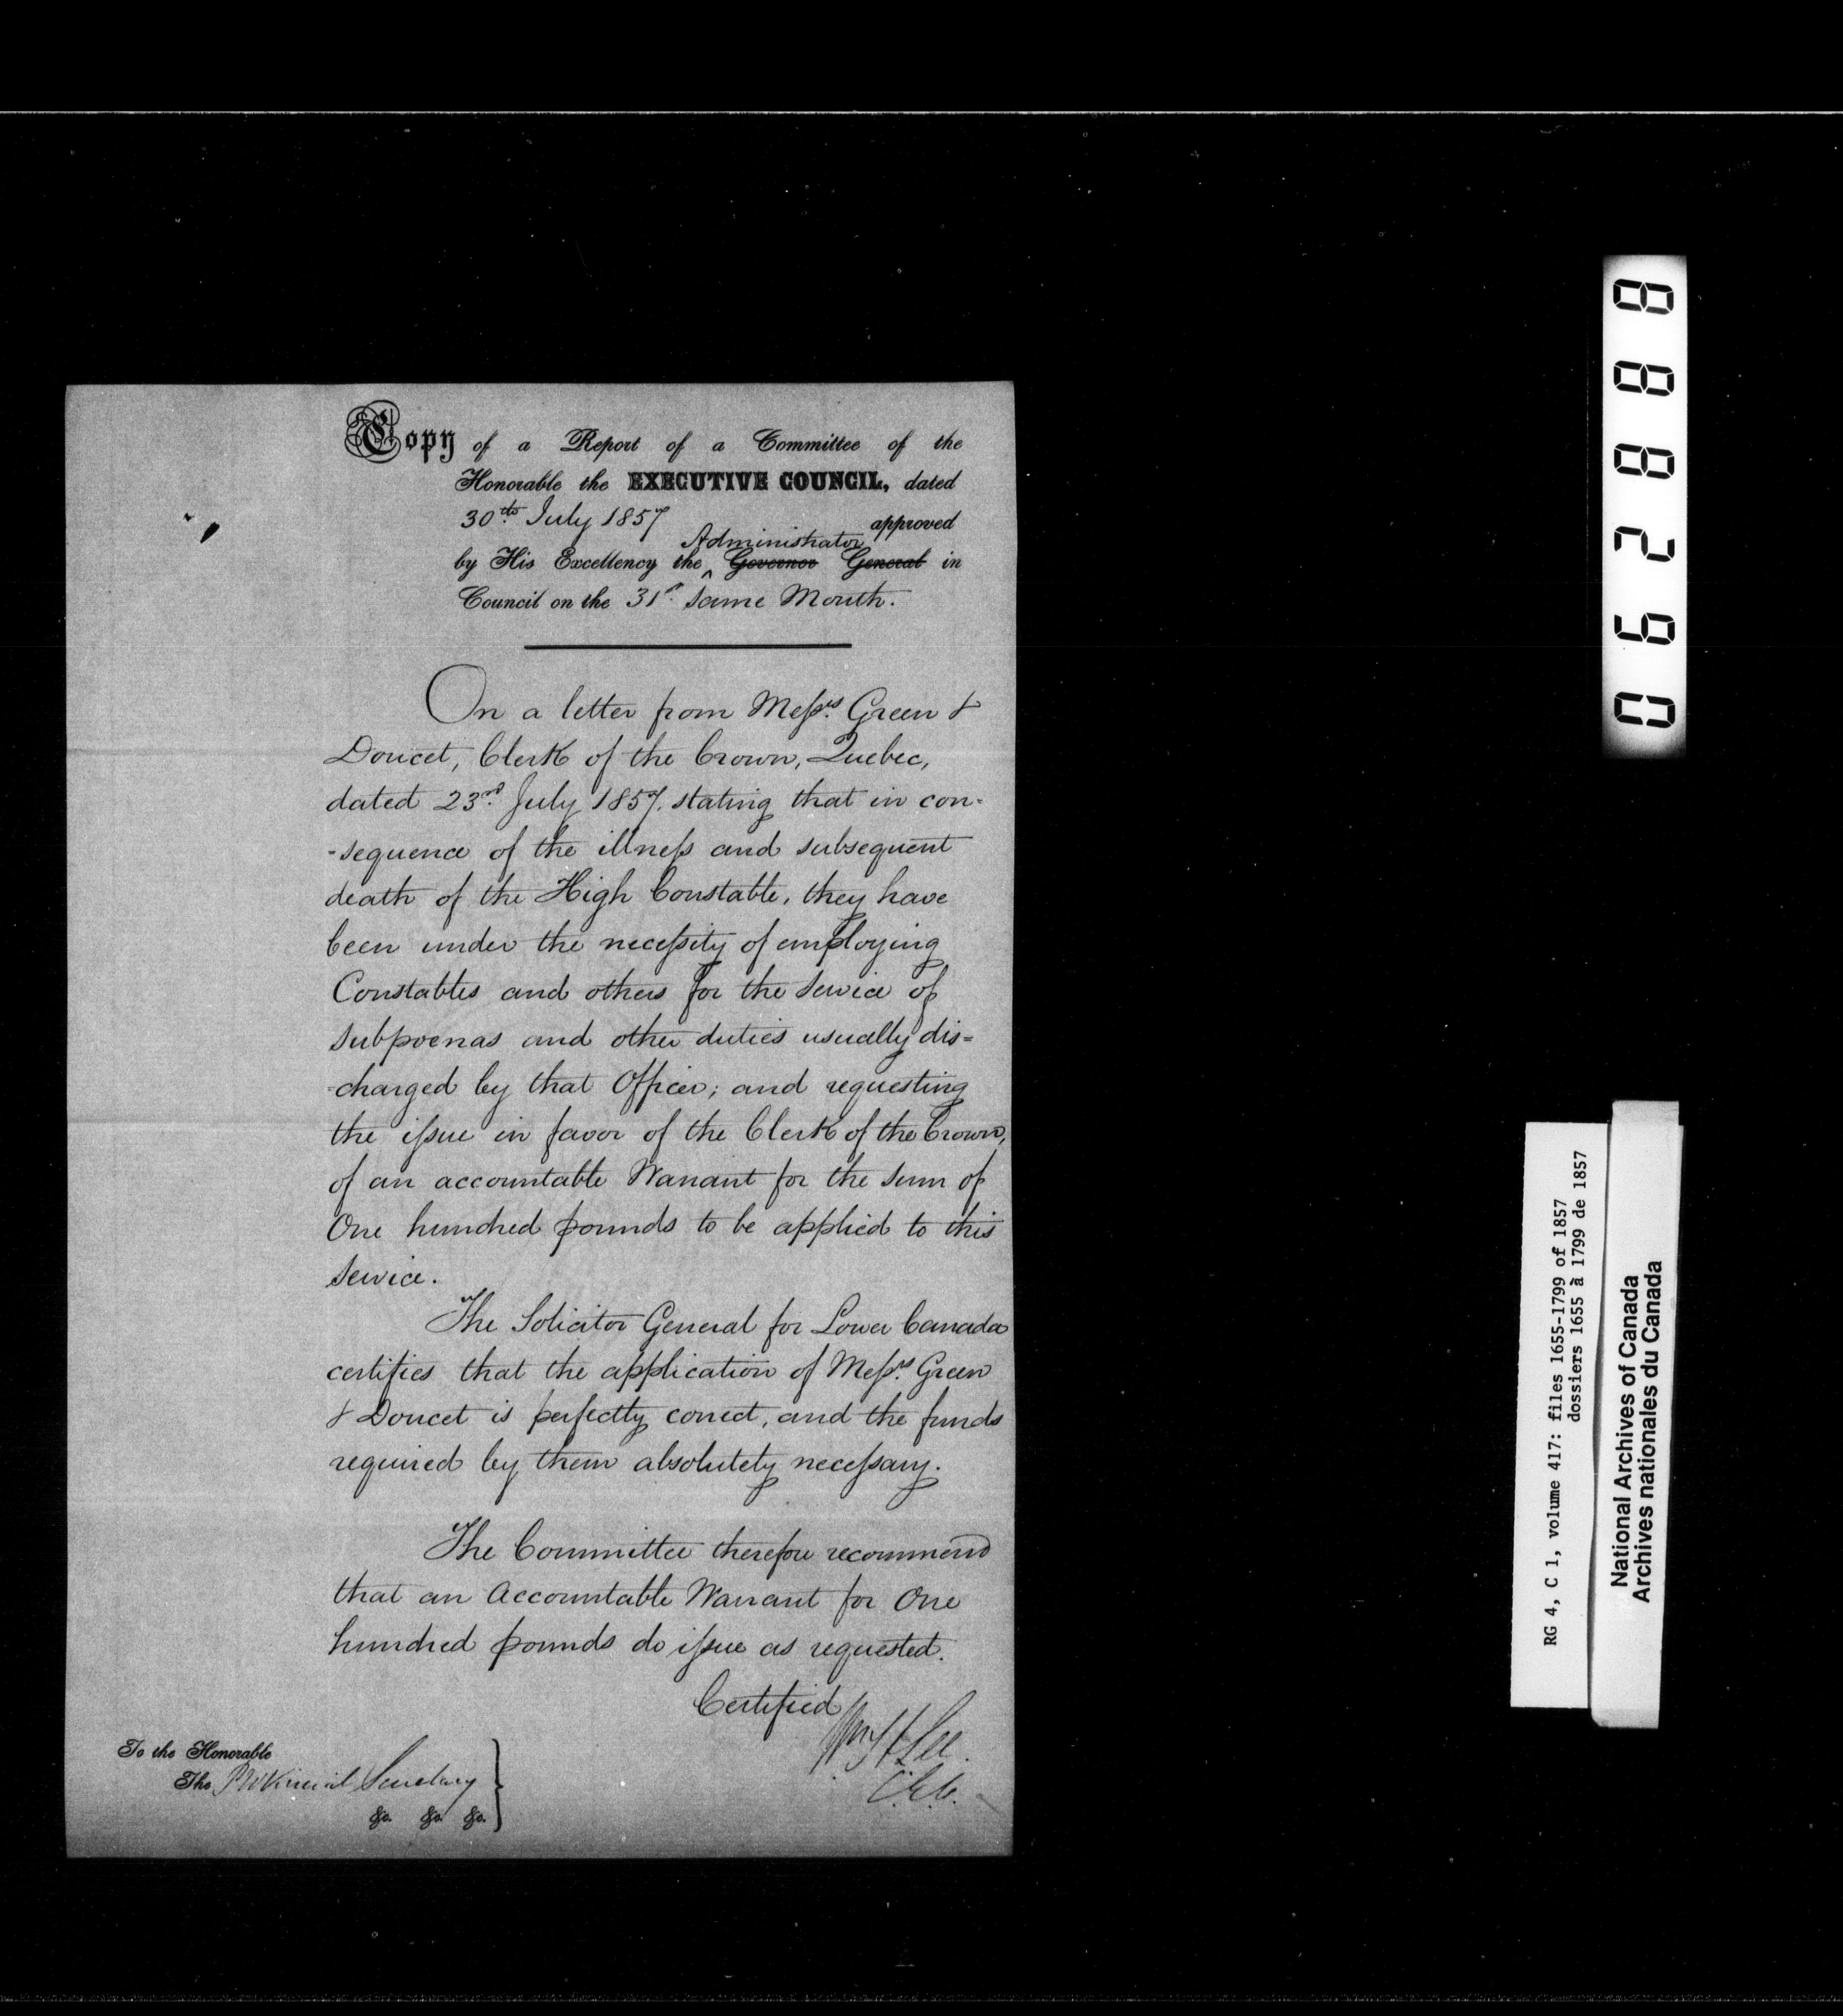 Copy of a Report of a Committee of the
Honorable the EXECUTIVE COUNCIL, dated
30th July 1857 approved
Administrator
by His Excellency the Governor General in
Council on the 31st same Month.
On a letter from Messrs Green &
Doucet, Clerk of the Crown, Quebec,
dated 23rd July 1857, stating that in con-
-sequence of the illness and subsequent
death of the High Constable, they have
been under the necessity of employing
Constables and others for the service of
subpoenas and other duties usually dis=
=charged by that Officer; and requesting
the issue in favor of the Clerk of the Crown,
of an accountable Warrant for the sum of
One hundred pounds to be applied to this
service.
The Solicitor General for Lower Canada
certifies that the application of Messrs Green
& Doucet is perfectly correct, and the funds
required by them absolutely necessary.
The Committee therefore recommend
that an Accountable Warrant for One
hundred pounds do issue as requested.
Certified
Wm H Lee
C.E.C.
To the Honorable
The Provincial Secretary
&c. &c. &c.
062888
RG 4, C 1, volume 417: files 1655-1799 of 1857
dossiers 1655 à 1799 de 1857
National Archives of Canada
Archives nationales du Canada